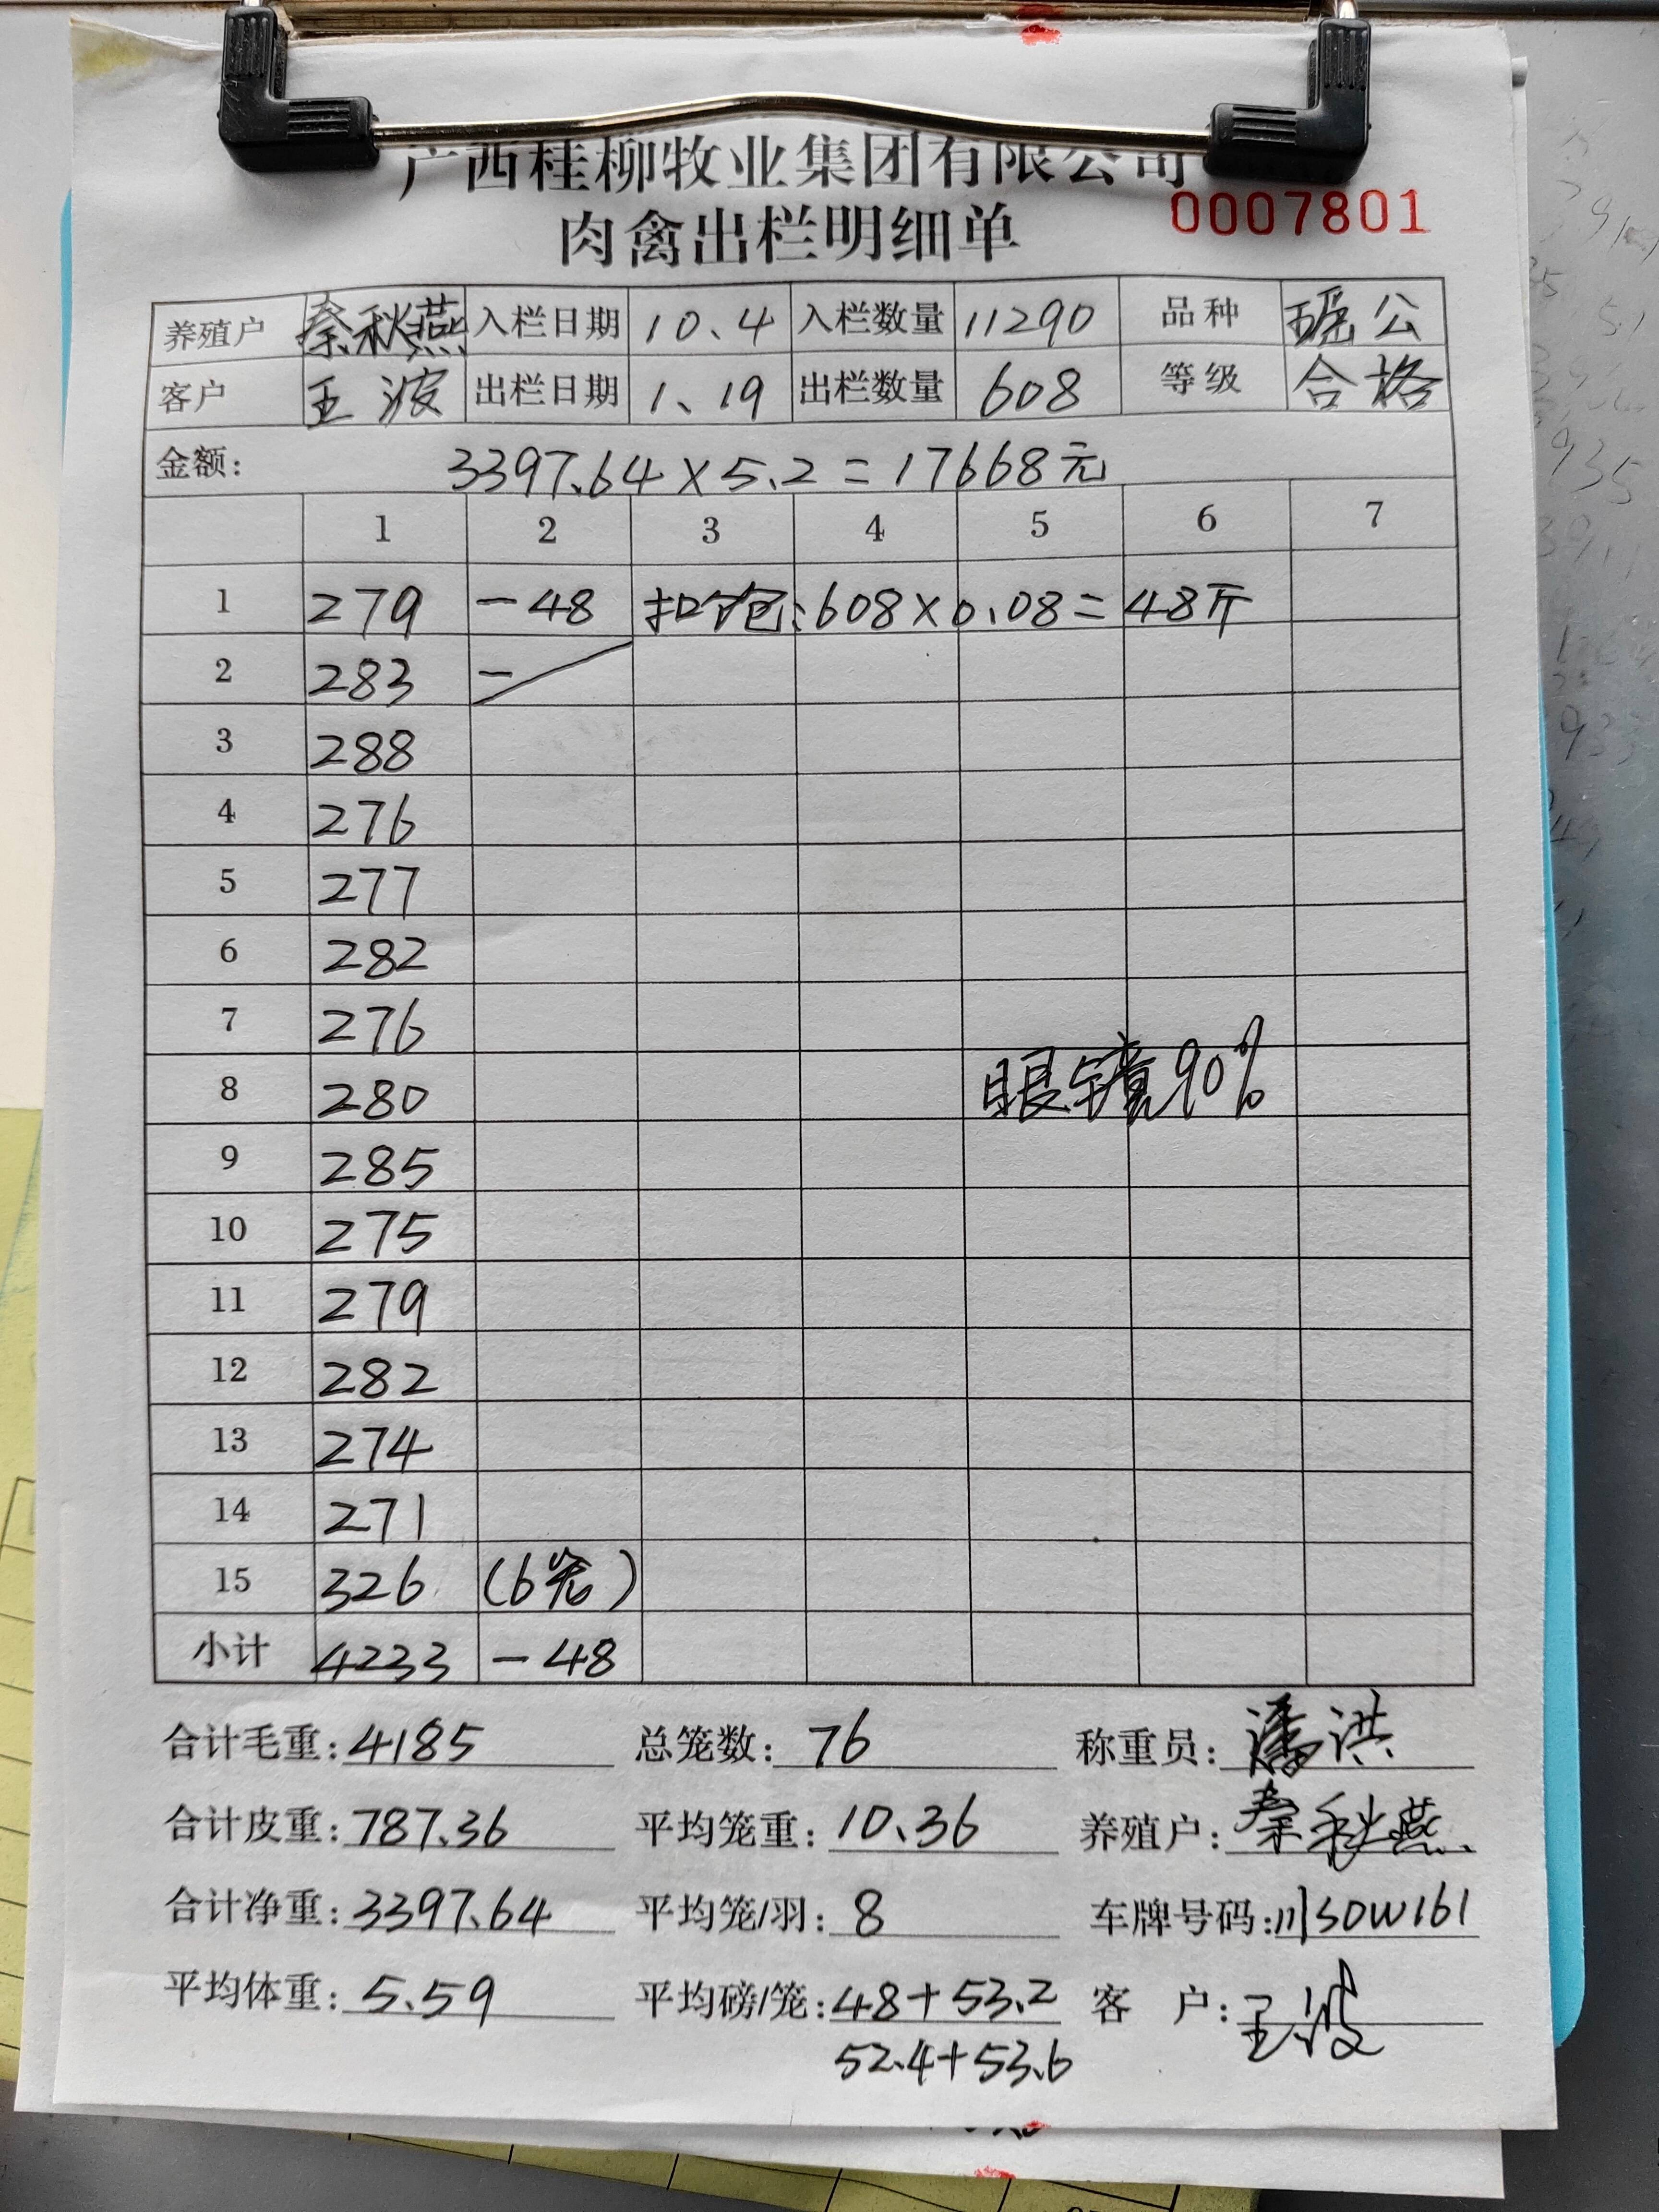 广西桂柳牧业集团有限公司
肉禽出栏明细单 0007801
养殖户 秦秋燕 入栏日期 10.4 入栏数量 11290 品种 瑶公
客户 王波 出栏日期 1.19 出栏数量 608 等级 合格
金额: 3397.64×5.2=17668元
1 2 3 4 5 6 7
1 279 -48 扣饱:608×0.08=48斤
2 283 -
3 288
4 276
5 277
6 282
7 276
8 280 眼镜90%
9 285
10 275
11 279
12 282
13 274
14 271
15 326 (6笼)
小计 4233 -48
合计毛重: 4185 总笼数: 76 称重员: 潘洪
合计皮重: 787.36 平均笼重: 10.36 养殖户: 秦秋燕
合计净重: 3397.64 平均笼/羽: 8 车牌号码: 川S0W161
平均体重: 5.59 平均磅/笼: 48+53.2 客 户: 王波
52.4+53.6